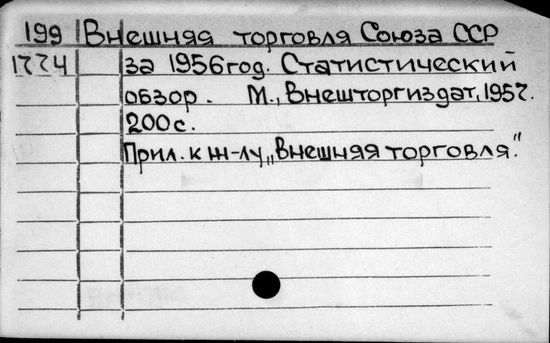 199 Внешняя торговля Союза ССР
1774 за 1956 год. Статистический
обзор. М., Внешторгиздат, 1957.
200 с.
Прил. к ж-лу „Внешняя торговля".